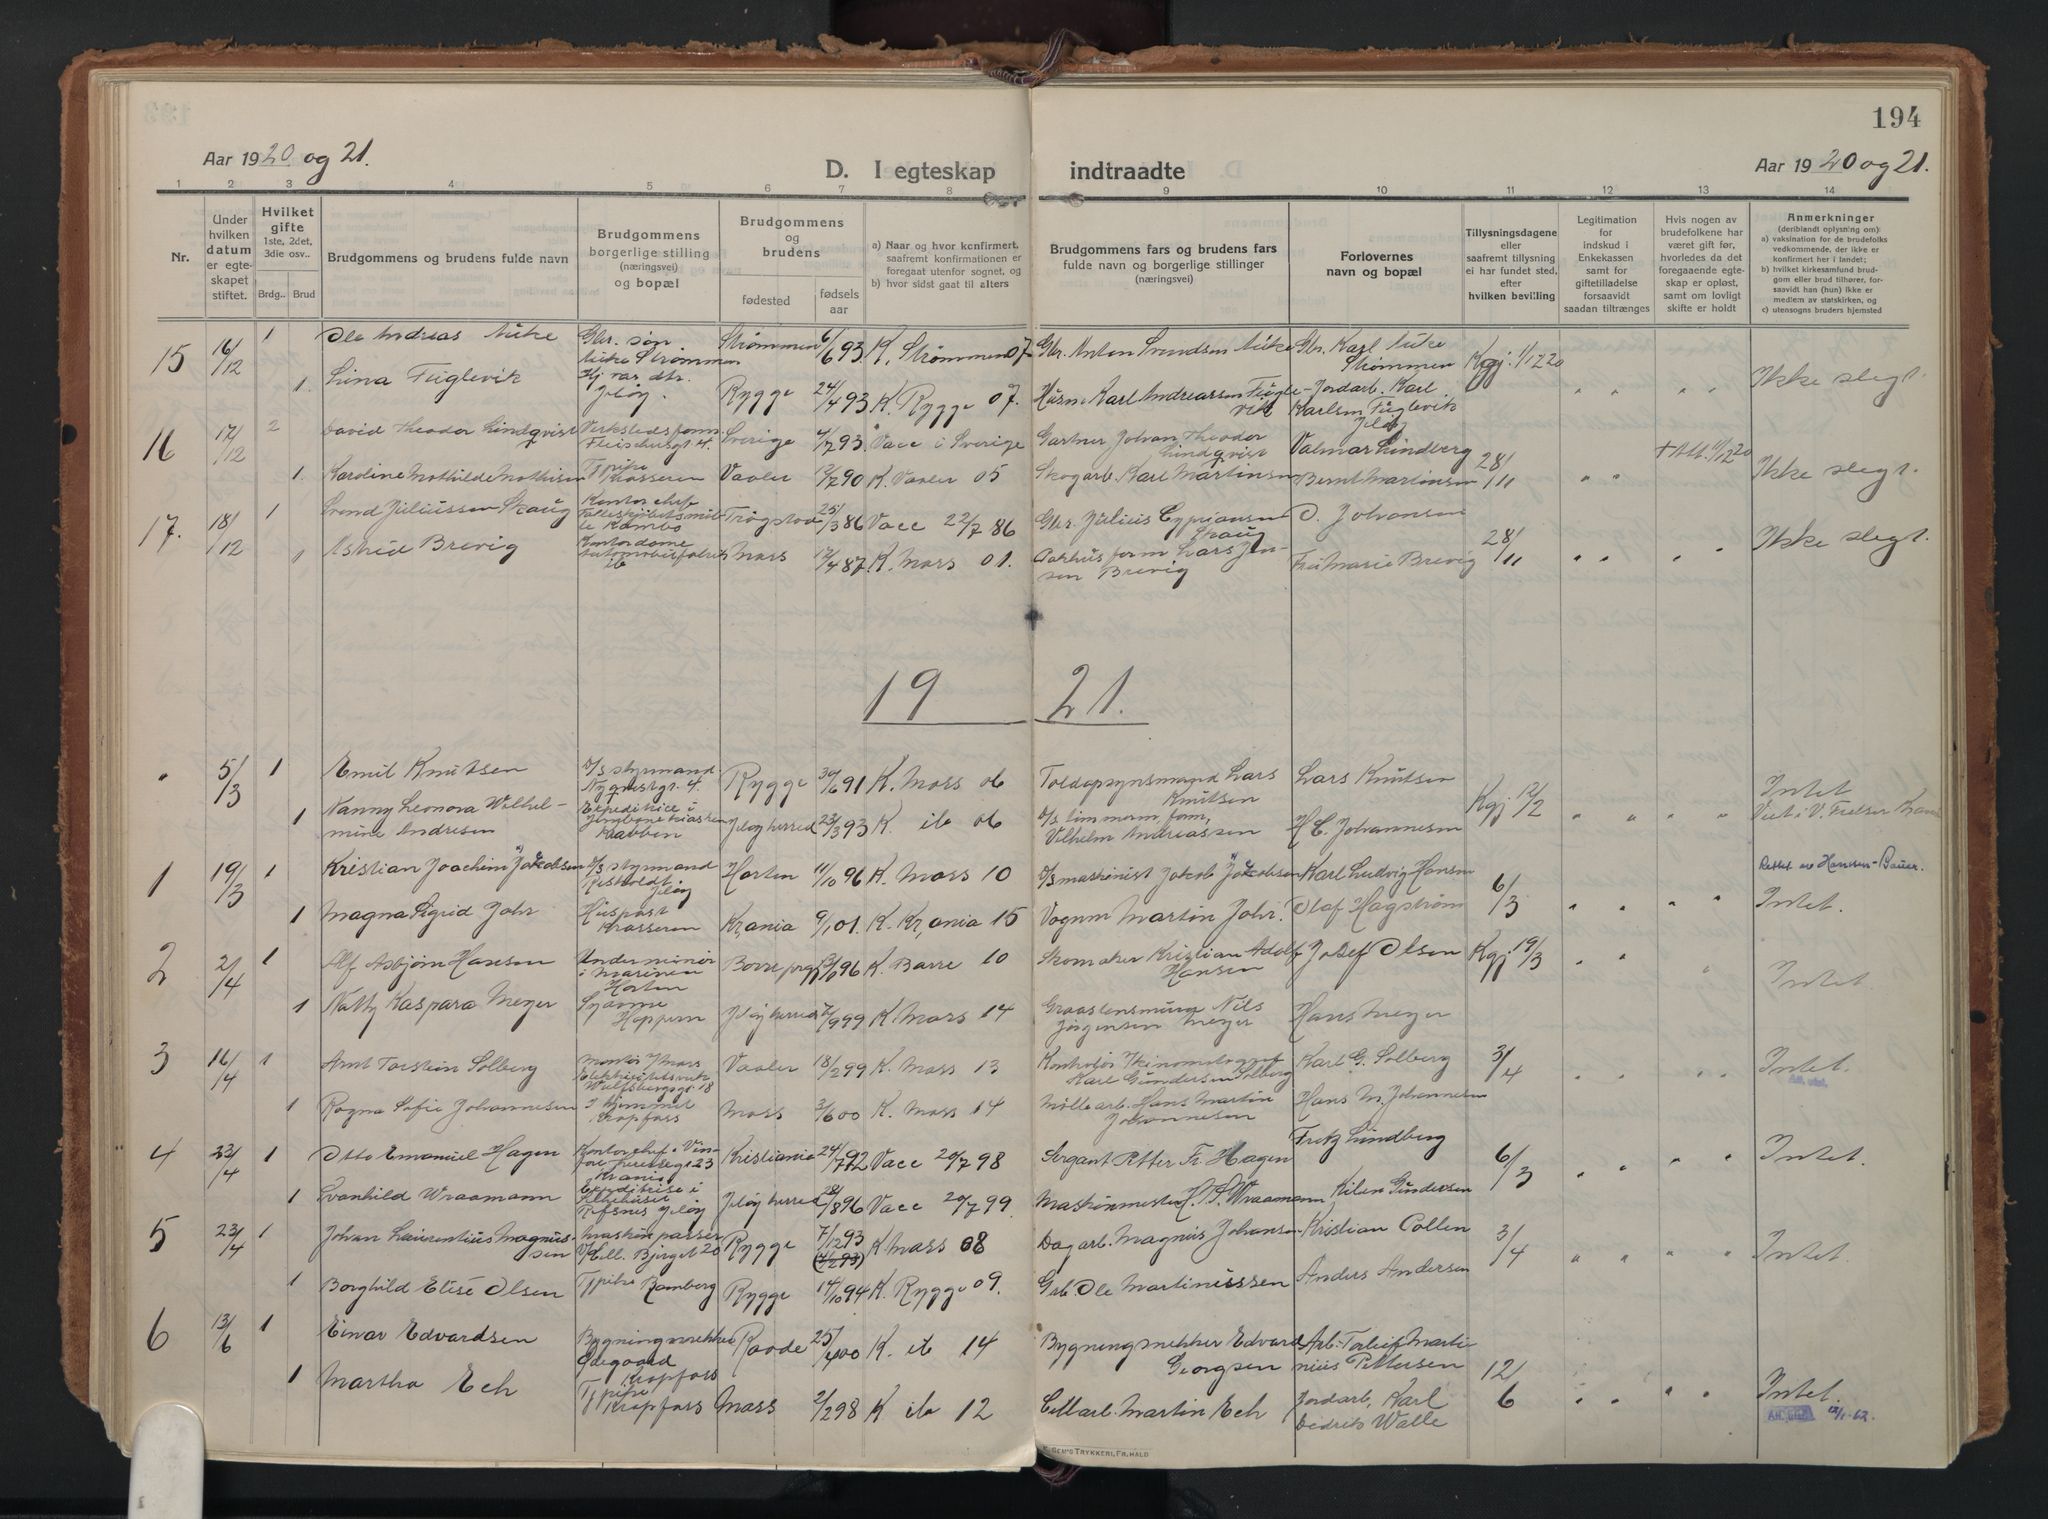 194
Aar 1920 og 21.
D. I egteskap indtraadte
Aar 1920 og 21.
1 2 3 4 5 6 7 8 9 10 11 12 13 14
Nr.
Under hvilken datum er egteskapet stiftet.
Hvilket gifte 1ste, 2det, 3die osv..
Brdg.. Brud
Brudgommens og brudens fulde navn
Brudgommens borgerlige stilling (næringsvei) og bopæl
Brudgommens og brudens
fødested
fødsels aar
a) Naar og hvor konfirmert, saafremt konfirmationen er foregaat utenfor sognet, og
b) hvor sidst gaat til alters
Brudgommens fars og brudens fars fulde navn og borgerlige stillinger (næringsvei)
Forlovernes navn og bopæl
Tillysningsdagene eller saafremt tillysning ei har fundet sted, efter hvilken bevilling
Legitimation for indskud i Enkekassen samt for giftetilladelse forsaavidt saadan tiltrænges
Hvis nogen av brudefolkene har været gift før, hvorledes da det foregaaende egteskap er opløst, samt om lovligt skifte er holdt
Anmerkninger (deriblandt oplysning om):
a) vaksination for de brudefolks vedkommende, der ikke er konfirmert her i landet;
b) hvilket kirkesamfund brudgom eller brud tilhører, forsaavidt han (hun) ikke er medlem av statskirken, og
c) utensogns bruders hjemsted
15 16/12 1 Ole Andreas Gbr. søn Strømmen 6/6 93. K. Strømmen 07 Gbr. Anton Svendsen Gbr. Karl Strømmen Kgj. 1/12 20
1. Lina Fuglevik Jeløy. Rygge 24/4 93 K. Rygge 07. Husm. Karl Andreassen Fuglevik Jordarb. Karl Karlsen Fuglevik Jeløy " " " " Ikke slegt.
16 17/12 2 David Theodor Lindqvist Verkstedsform. Sverige 4/7 93. Vacc i Sverige Gartner Johan Theodor Lindqvist Valmar Lindberg
1. Karoline Mathilde Mathisen Tjpike Krosseren Vaaler 12/7 90 K. Vaaler 05 Skogarb. Karl Martinsen Bernt Martinsen 28/11 " " Ikke slegt.
17. 18/12 1 Svend Juliussen Skaug Kontorchef Kambo Trøgstad 25/3 86 Vacc 22/7 86 Gbr. Julius Cyprianson Skaug O. Johansen
1 Astrid Brevig Kontordame Moss 17/4 87 K. Moss 01. Pakhusform Lars Jensen Brevig Frk Marie Brevig 28/11 " " " " Ikke slegt.
19 21.
" 5/3 1 Emil Knutsen D/s styrmand Nyquistgt. 4. Rygge 30/6 91 K. Moss 06 Toldopsynsmand Lars Knutsen Lars Knutsen
1 Nanny Leonora Wilhelmine Andresen Expeditrice i Krabben Jeløy herred 23/3 93 K. ib 06 Vilhelm Andreassen H C. Johannesen Kgj 12/2 " " " " Intet
1 19/3 1 Kristian Joachim Jacobsen D/s styrmand Jeløy Horten 11/10 96 K. Moss 10 D/s maskinist Jakob Jacobsen Karl Ludvig Hansen Rettet av Hansen-Bauer.
1 Magna Sigrid Johr Huspost Krosseren Kr,ania 9/1 01. K. Kr,ania 15 Vognm Martin Johr. Olaf Hagstrøm 6/3 " " " " Intet.
2 2/4 1 Alf Asbjørn Hansen Underminør i marinen Horten Borre prgj K. Borre 10 Skomaker Kristian Adolf Hansen Josef Olsen Kgj 19/3 " " " Intet.
1 Natty Kaspara Meyer Sydame Hoppern Jeløy herred 7/9 99 K. Moss 14 Graastensmurer Nils Jørgensen Meyer Hans Meyer
3 16/4 1 Arnt Torstein Solberg Montør v/ Moss Elektricitetsverk Wulfsbergsgt. 18 Vaaler 18/2 99 K. Moss 13 Kontrolør v/kinomatograf Karl Gundersen Solberg Karl G. Solberg 3/4 " " " " Intet.
1 Ragna Sofie Johannesen I hjemmet Kropfoss Moss 3/6 00 K. Moss 14 Møllearb. Hans Martin Johannesen Hans M. Johannesen
4 23/4 1 Otto Emanuel Hagen Kristiania 24/7 92 Vacc 20/7 98 Sergant Petter Fr. Hagen Fritz Lindberg 6/3 " " " " Intet.
1 Svanhild Wraamann Expeditrise i Refsnes Jeløy Jeløy herred 28/8 96 Vacc 20/7 99. Maskinmester H. P. Wraamann Kilen Gundersen
5 23/4 1 Johan Laurentius Magnussen Maskinpasser Rygge 7/12 93 K. Moss 08 Dagarb. Magnus Johansen Kristian Collen 3/4 " " " " Intet
1 Borghild Elise Olsen Tjpike Ramberg Rygge 14/10 94 K. Rygge 09. Grb. Ole Martinissen Anders Andersen
6 13/6 1 Einar Edvardsen Bygningssnekker Ødegaard Kropfoss Raade 25/4 00 K. ib 14 Bygningsnekker Edvard Georgsen Arb. Torleif Martinius Pettersen 12/6
1 Martha Ech Tjpike Kropfoss Moss 2/2 98 K ib 12 Cell.arb. Martin Ech Jordarb. Karl Walle " " " " Intet.
K. Sem's Trykkeri, Fr.hald